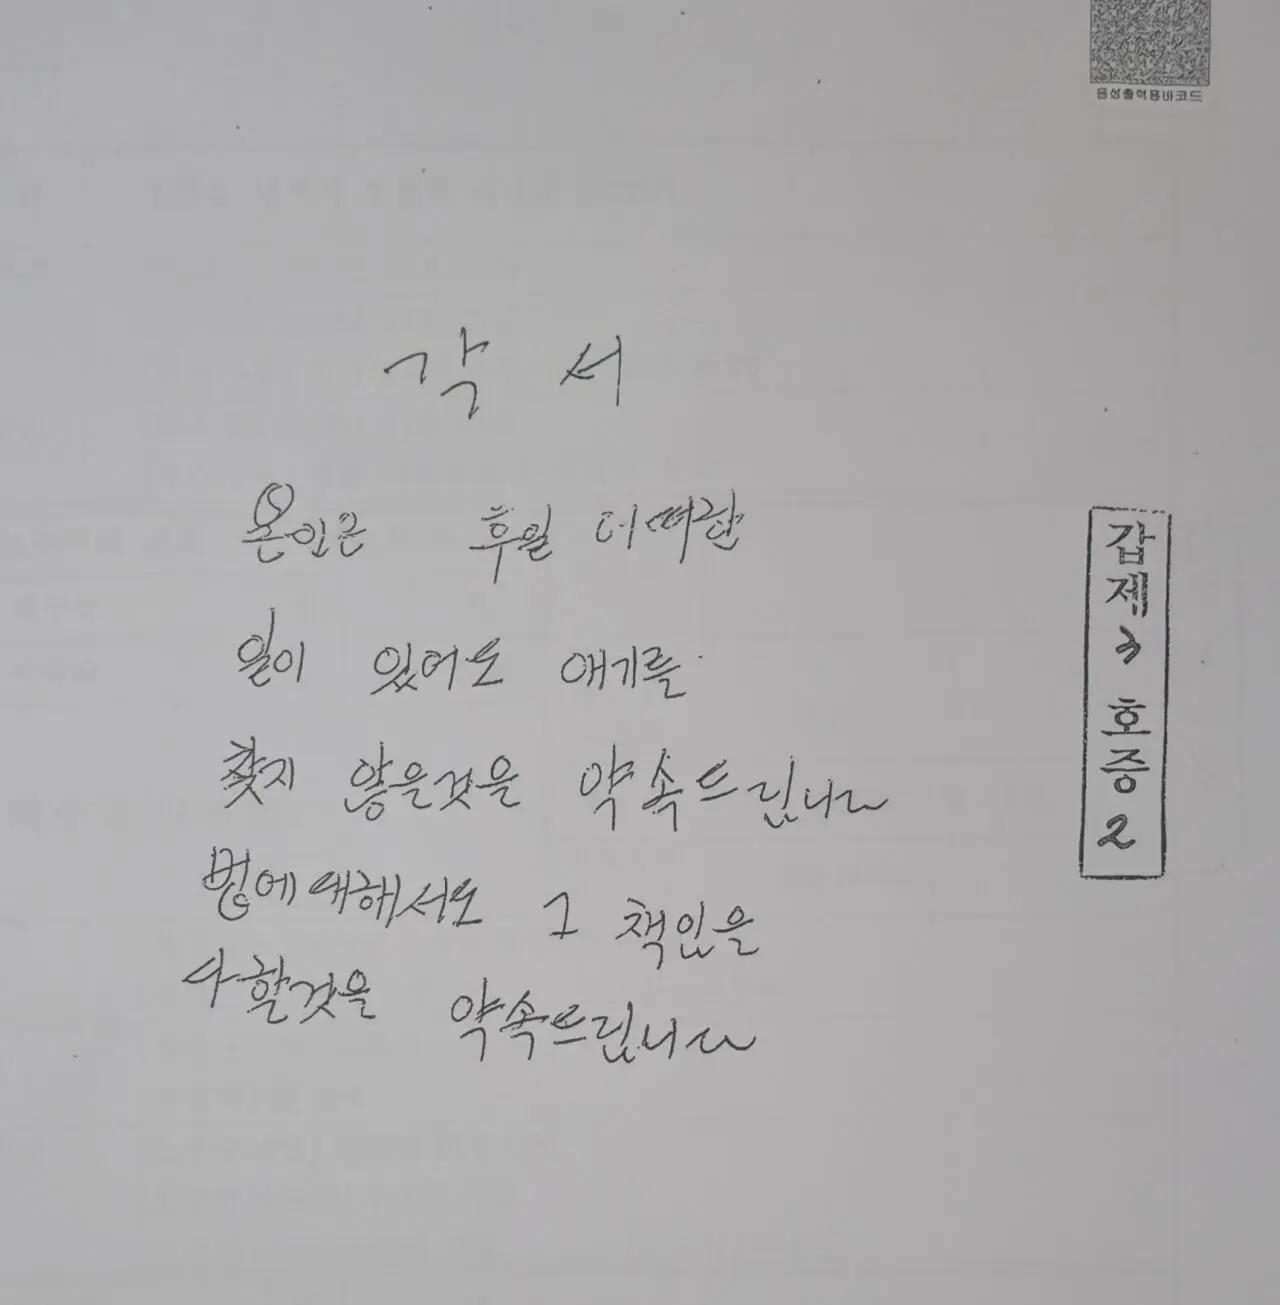 음성출력용바코드
각 서
본인은 후일 더떠한
일이 있어도 애기를
찾지 않을것을 약속드립니다
법에대해서도 그 책임을
다할것을 약속드립니다
갑제3호증2